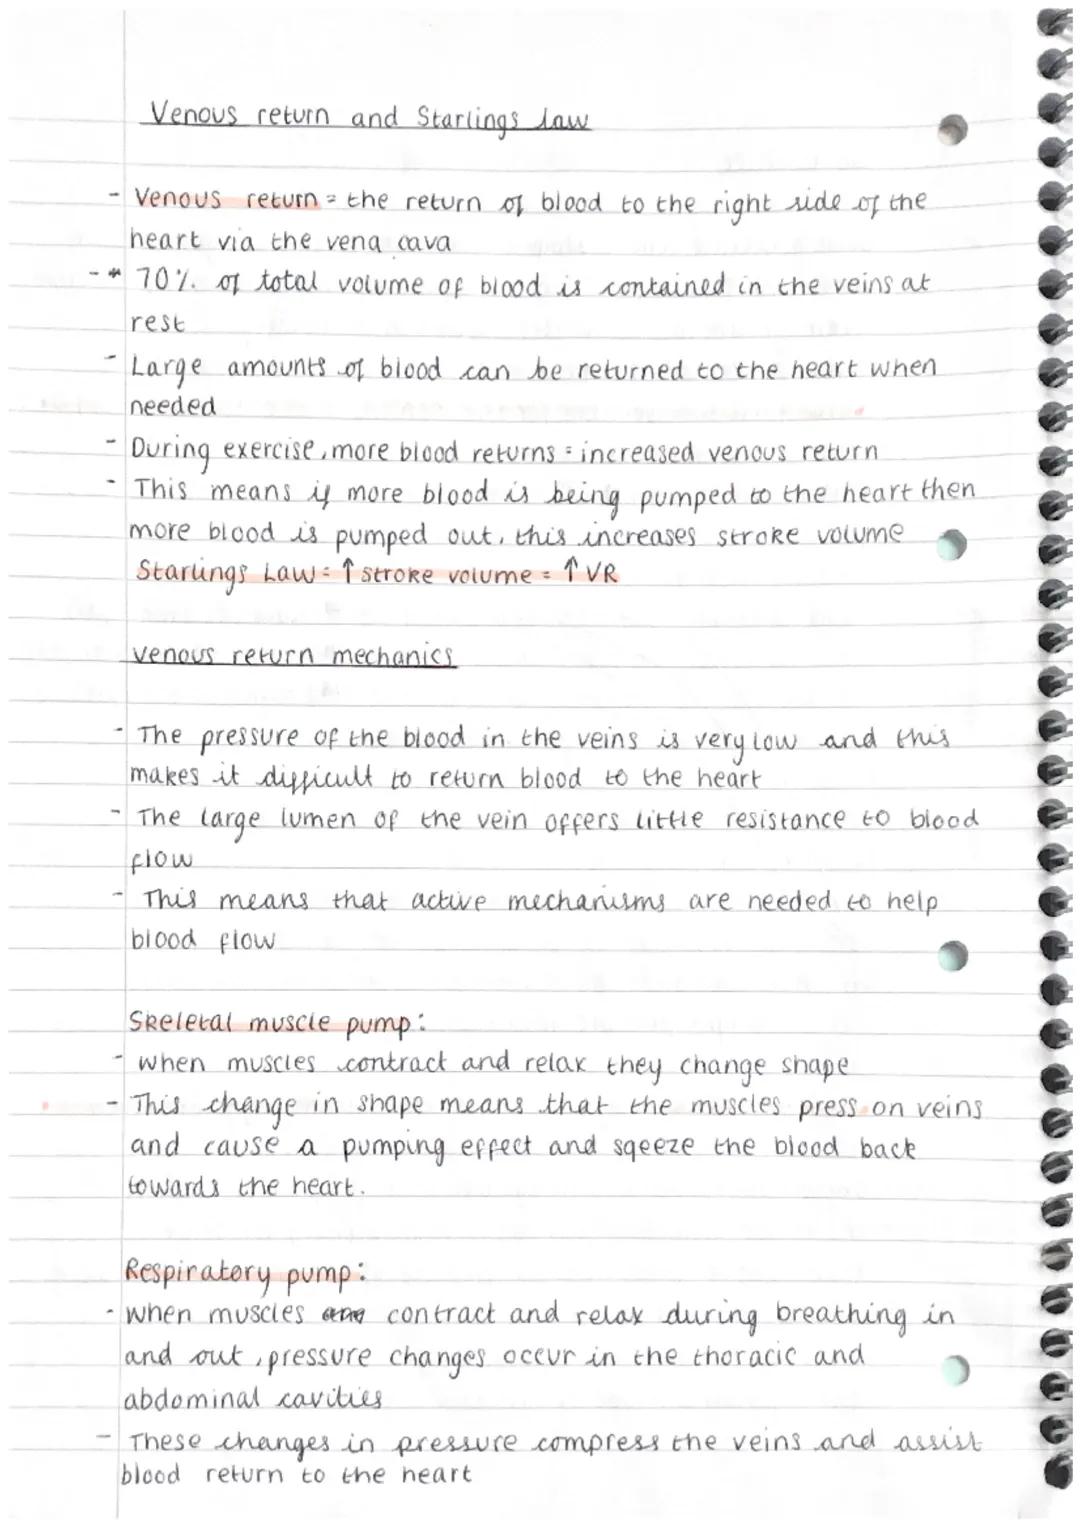 Venous return and Starlings law
- Venous return = the return of blood to the right side of the
heart via the vena cava
- * 70% of total volume of blood is contained in the veins at
rest
- Large amounts of blood can be returned to the heart when
needed
- During exercise, more blood returns = increased venous return
- This means if more blood is being pumped to the heart then
more blood is pumped out, this increases stroke volume
Starlings Law = ↑ stroke volume = ↑ VR
venous return mechanics
- The pressure of the blood in the veins is very low and this
makes it difficult to return blood to the heart
- The large lumen of the vein offers little resistance to blood
flow
- This means that active mechanisms are needed to help
blood flow
Skeletal muscle pump:
- when muscles contract and relax they change shape
- This change in shape means that the muscles press on veins
and cause a pumping effect and sqeeze the blood back
towards the heart.
Respiratory pump:
- when muscles contract and relax during breathing in
and out, pressure changes occur in the thoracic and
abdominal cavities
- These changes in pressure compress the veins and assist
blood return to the heart